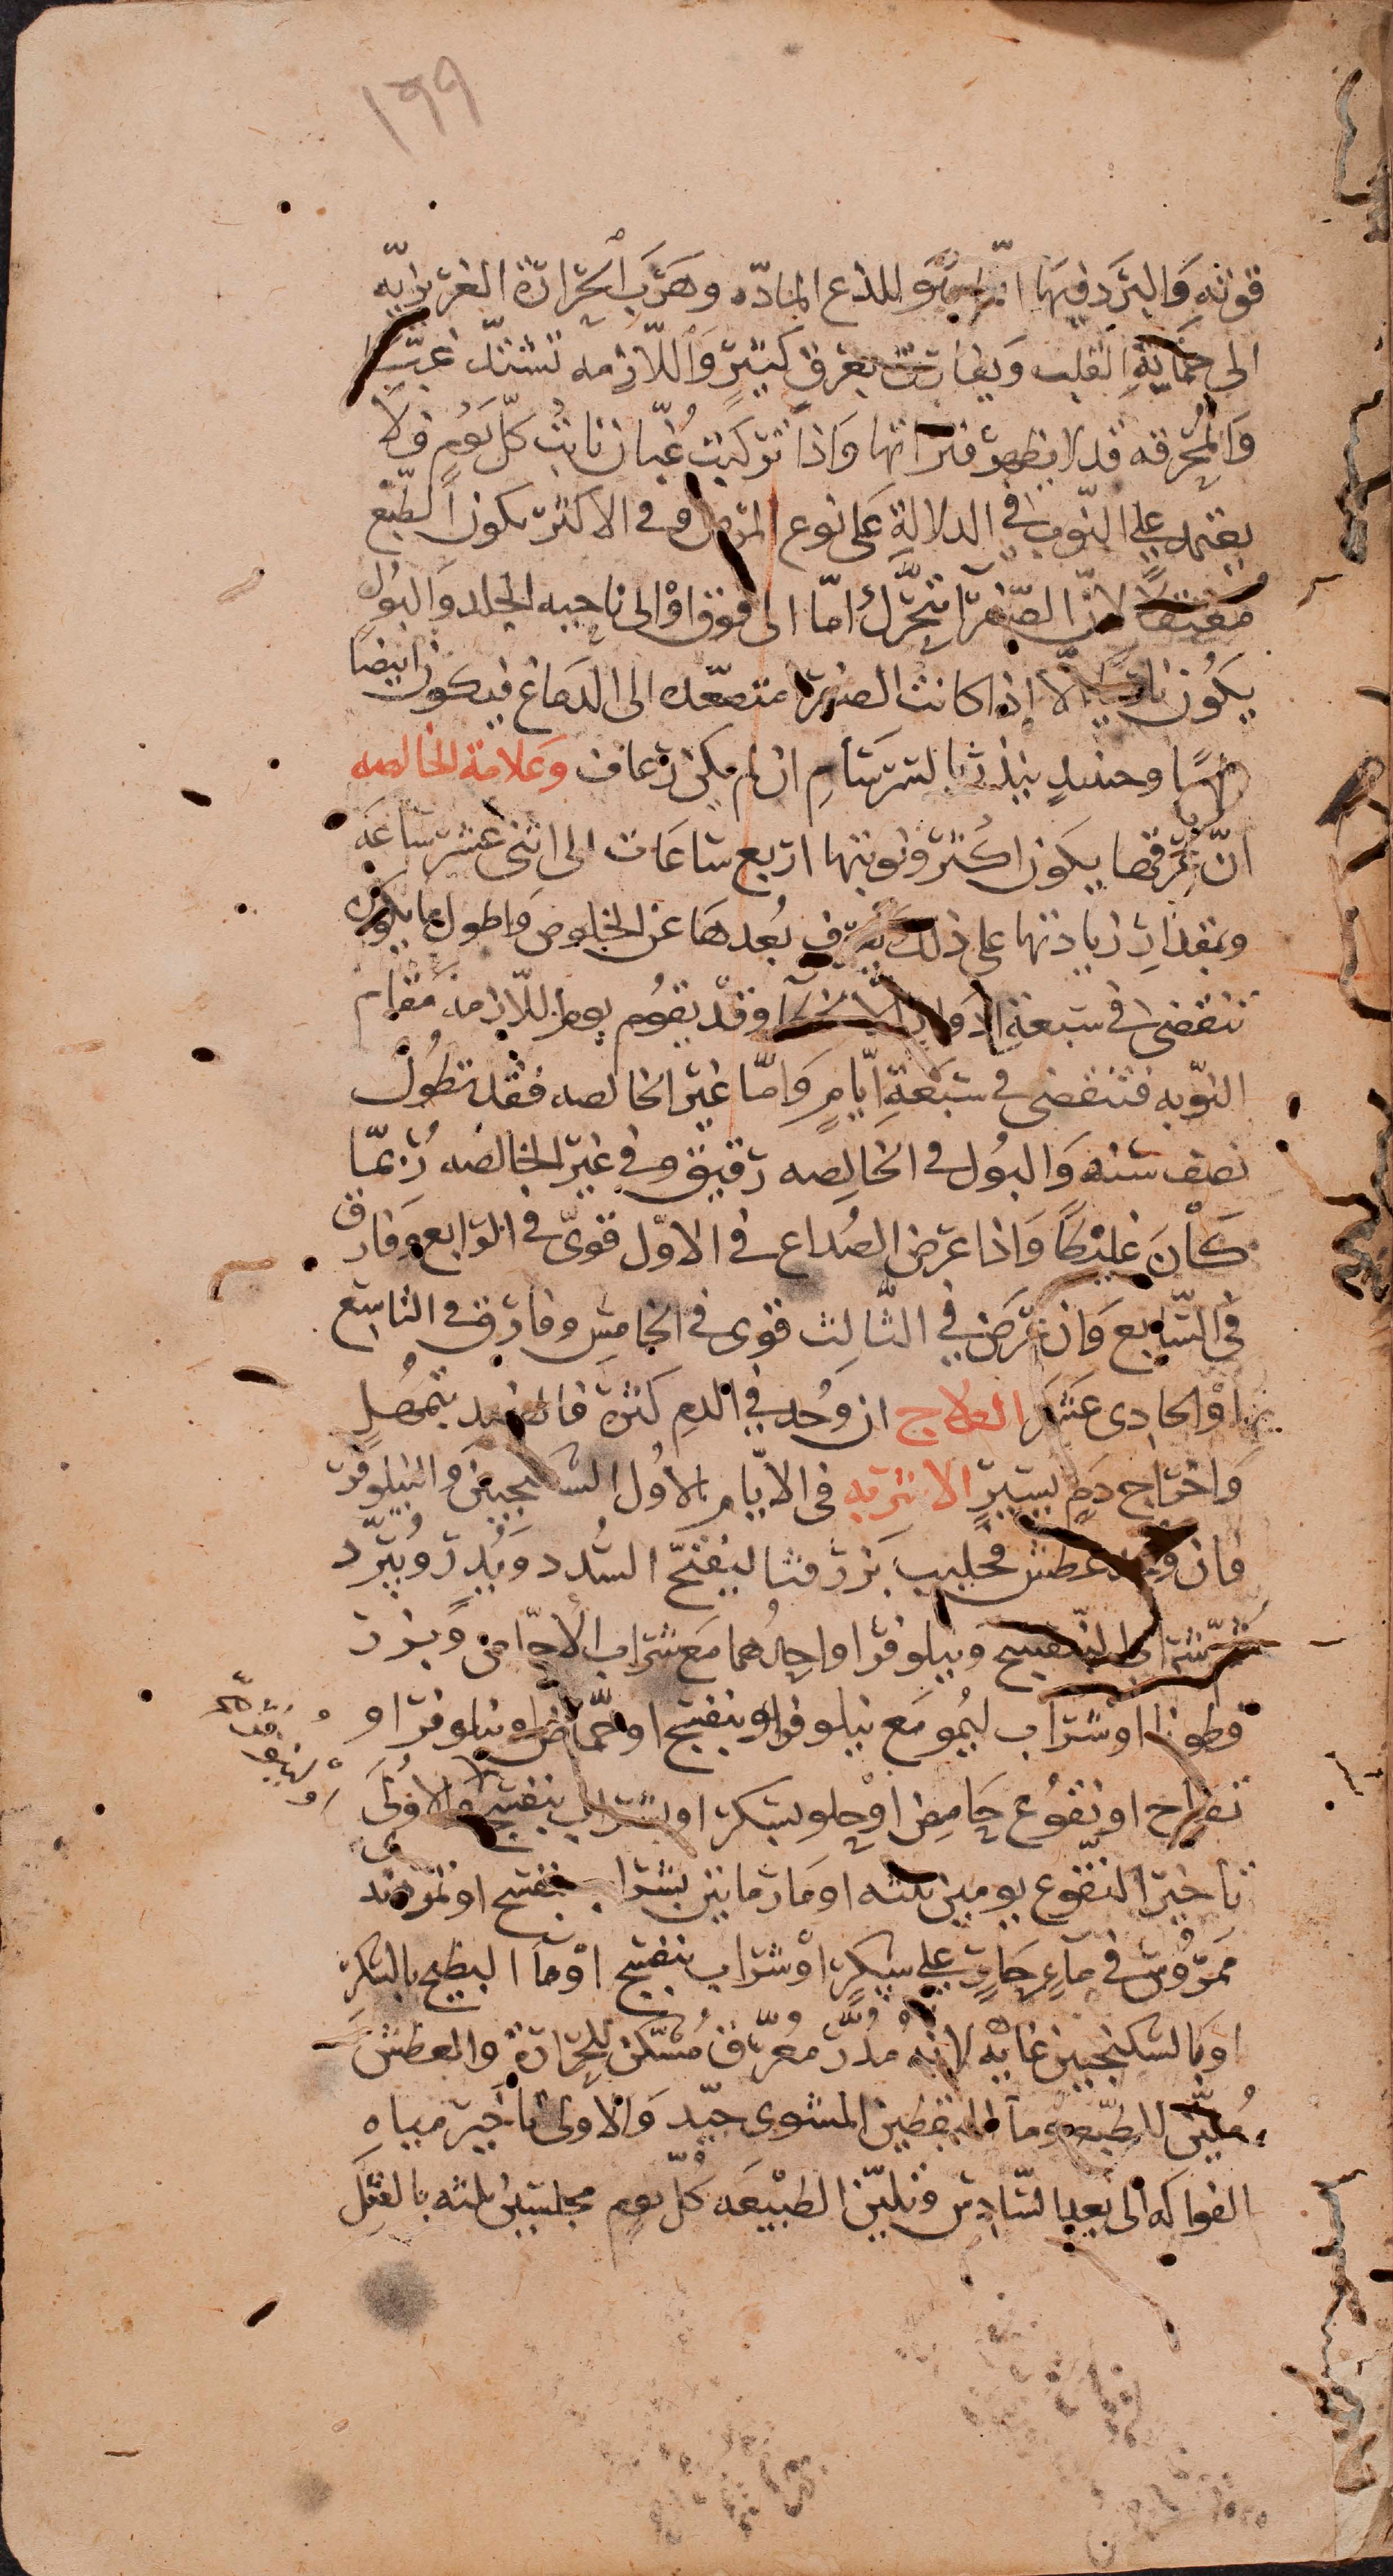 ١٩٩
قوته وَالبَرَد فيهَا انّما هُوَ للذع المادّه وهَرَب الحَرَارَة الغَريزيّه
الى حمايَةِ القلب وَيفارق بعَرقٍ كثيرٍ وَاللّازمه تشتدّ غبّا
وَالمُحرقه قد لا يظهر فتراتها وَاذا تركبت غُبّان نابتْ كلّ يَومٍ فلا
يعتمد على النّوب في الدلالة عَلى نوع المرض وفى الاكثر يكون الطّبع
مُعتقلًا لانّ الصّفرآ تتحَرّك امّا الى فوق اوْ الى ناحيه الجلد وَالبَول
يكُون ناريًّا الّا إذا كانت الصفرا متصعّده الى الدمَاغ فيكون ابيضًا
وحينئذٍ ينذر بالسَرسَامِ ان لم يكن رعاف وَعَلامَة الخالصه
انّ عَرَقها يكون اكثر ونوبتها اربع سَاعَات الى اثنى عشر ساعَه
وبمقدارِ زيادتها على ذلك يعرف بُعدهَا عن الخلوص وَاطول ما يكون
تنقضى فى سَبعَةِ ادوار وقدْ يقوُم يوم اللّازمة مقام
النّوبه فتنقضى فى سَبْعَةِ ايّامٍ وَامّا غير الخالصه فقد تطُول
نصف سَنه وَالبوُل فى الخالِصه رقيق وفى غير الخالصه رُبمّا
كانَ غليظًا وَاذا عرض الصُداع فى الاوّل قوىّ فى الرّابع وَفارق
فى السّابع وَان عَرَضَ في الثّالِث قوى فى الخامِس وفارق فى التاسِع
اوْ الحادى عَشَر العلاج ان وُجد في الدم كثرة فالفصد بتمهُل
وَاخراج دَمٍ يَسيرٍ الاشربه فى الايّام الأوَل السكنجبين والنيلوفر
فان وجد عطش فحليب بَزر قثا ليُفتحّ السُدد وَيُدِرّ ويُبَرّد
او شراب البّنفسج ونيلوفر او احدُهما مَع شراب الاجّاص وبزر
قطونا او شَرَاب ليُمو مَع نيلوفر او بنفسج او حُمّاض او نيلوفر او
تفاح او نقوُع حَامِض اوْ حلو بسكر او بشراب بنفسج وَالاوْلَى
تاخير النقوّع يومين ثلثه او مَا رمانين بشراب بنفسج او تمر هند
ممرُوس فى مآءٍ حَارٍ على سكرٍ اوْ شراب بنفسج اوْ مآ البطيخ بالسكر
او بالسكنجبين غايه لانهُ مُدرّ مُعرّق مُسَكّن للحرارَة وَالعطش
مُليّن للطّبع وَمآ اليقطين المشوى جيّد وَالاولى تاخير مياهِ
الفواكه الى بعد السّادِس وتليّن الطبيْعَه كلّ يومٍ مجلسَين ثلثه بالفتل